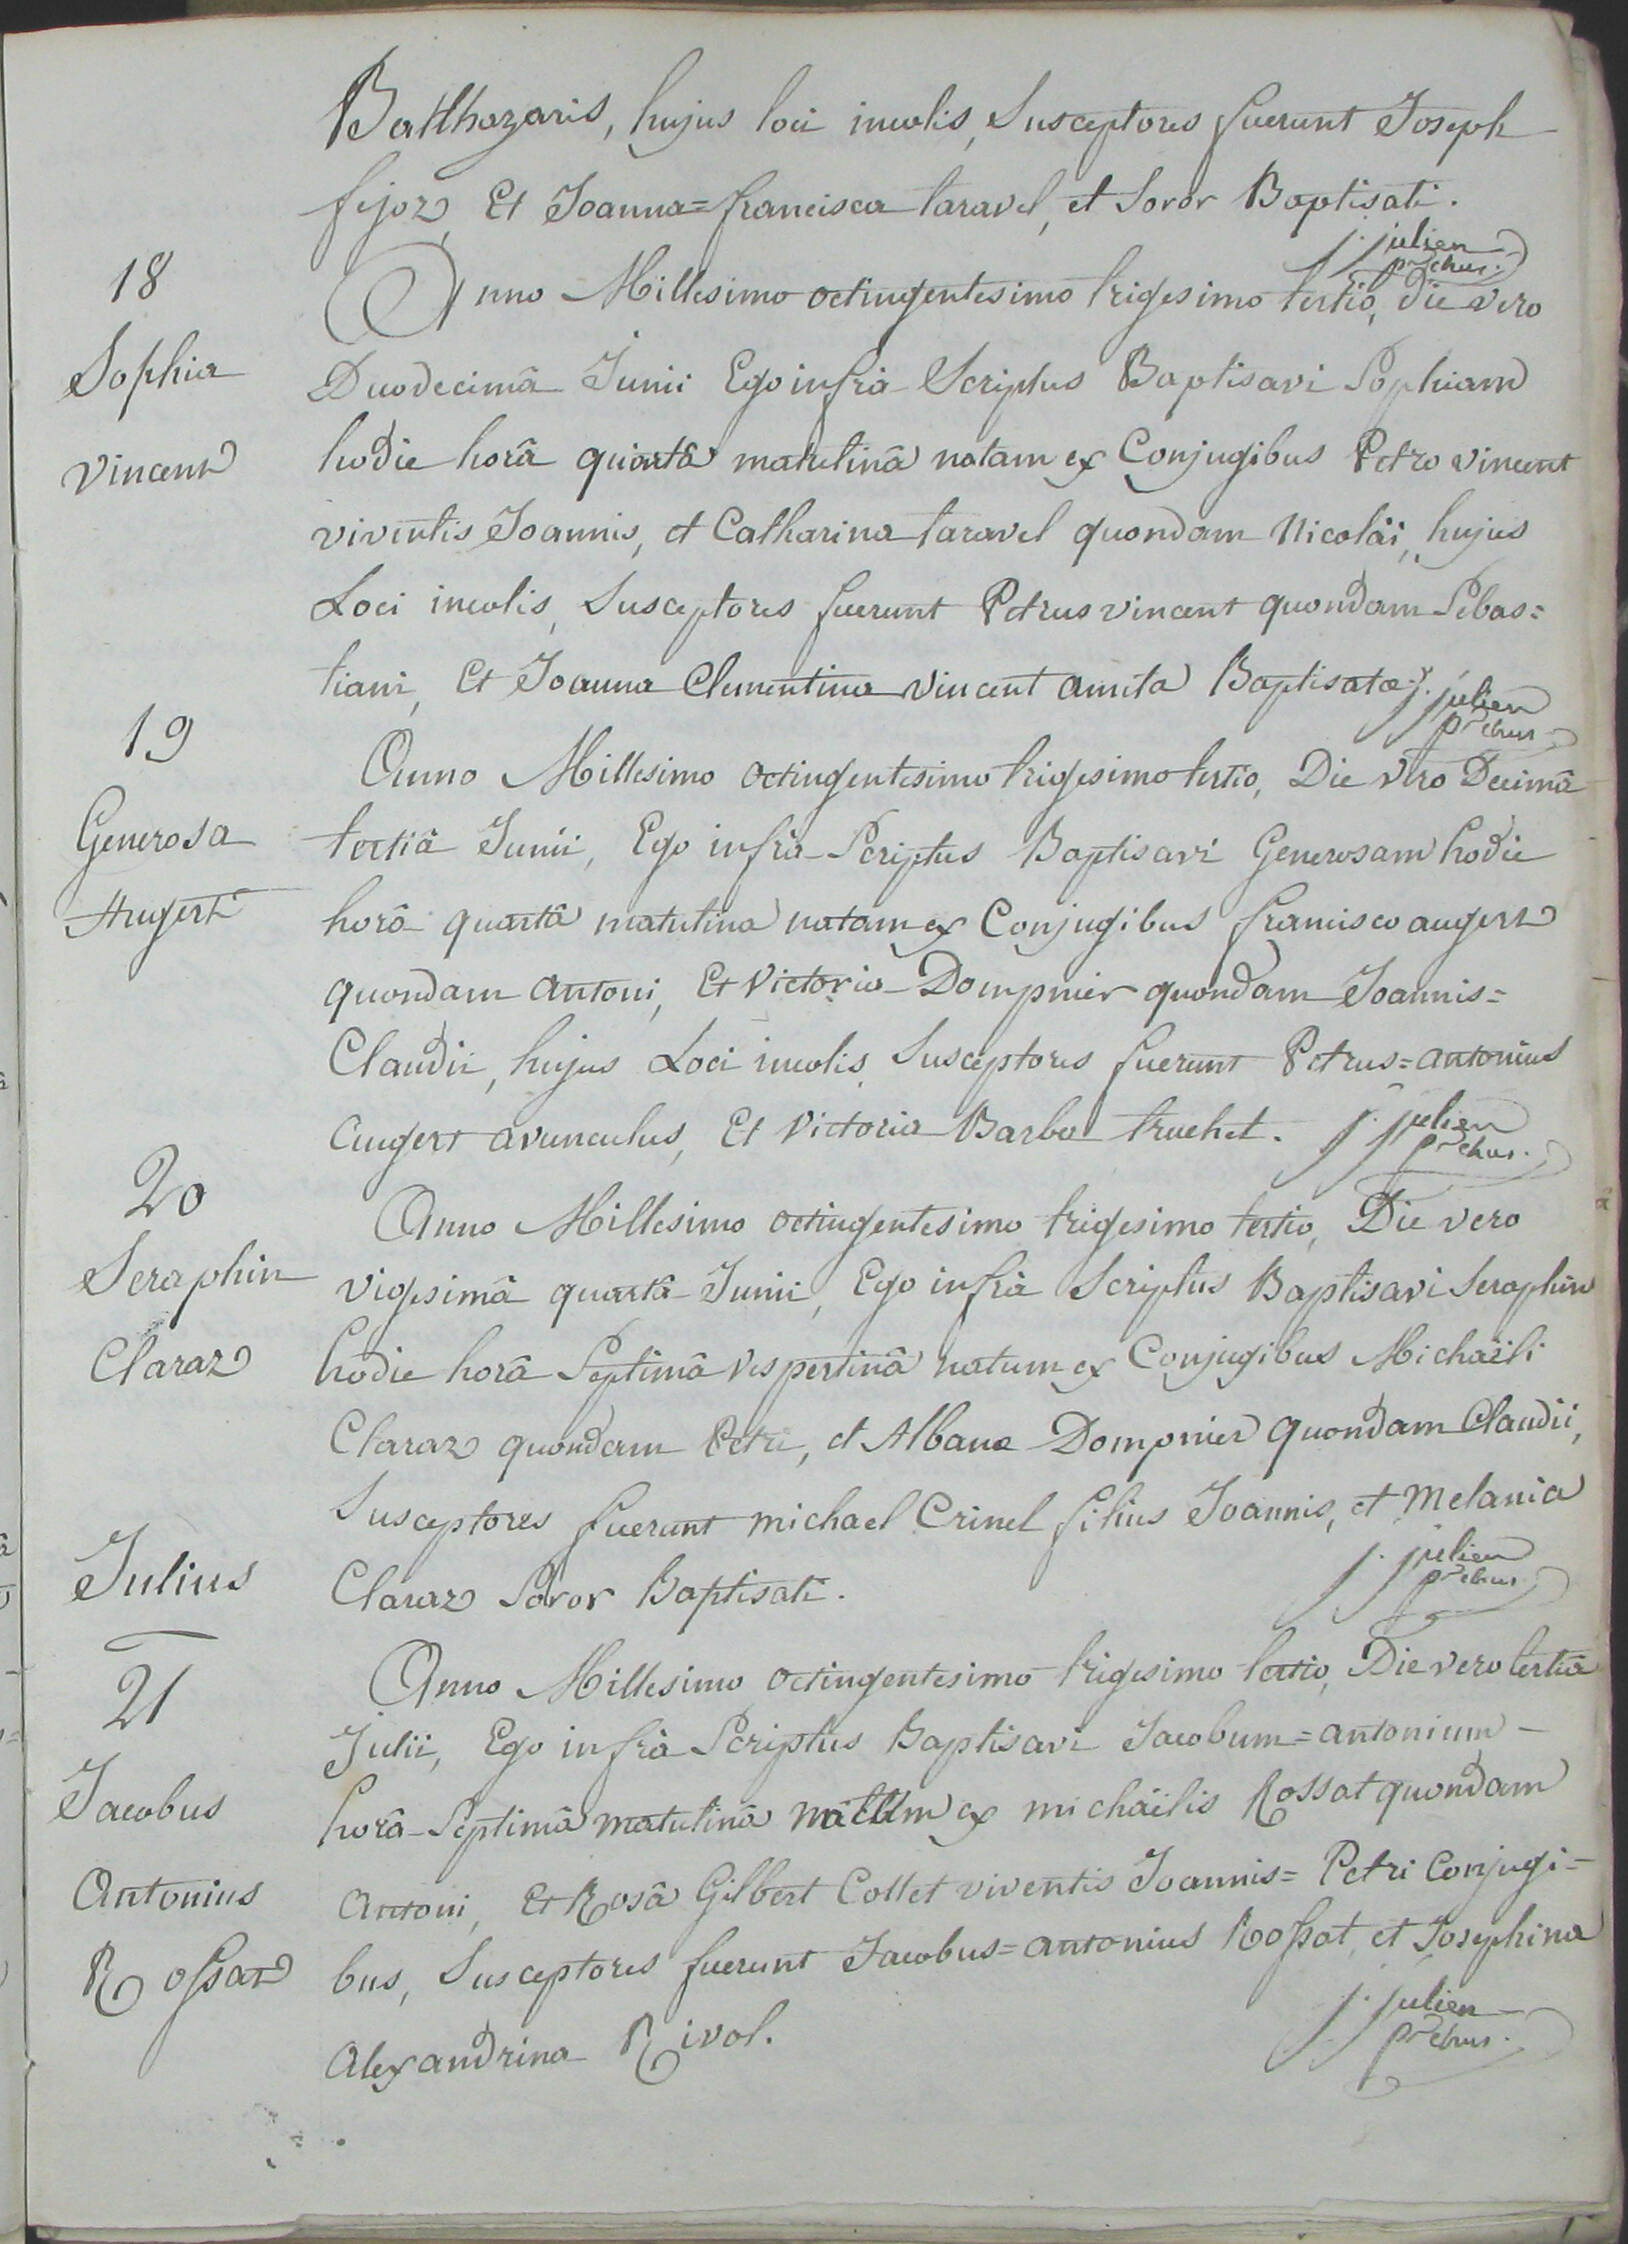 Balthazaris, hujus loci incolis, Susceptores fuerunt Joseph
fejoz, Et Joanna=francisca taravel, et Soror Baptisati.
j. julien
18
Anno Millesimo octingentesimo trigesimo tertio, die vero
Sophia
Duodecimâ Junii Ego infrà Scriptus Baptisavi Sophiam
Vincent
hodie horâ quartâ matutinâ natam ex Conjugibus Petro vincent
viventis Joannis, et Catharina taravel quondam Nicoläi, hujus
Loci incolis, Susceptores fuerunt Petrus vincent quondam Sebas=
tiani, Et Joanna Clementina vincent amita Baptisatæ.
j. julien
19
Anno Millesimo octingentesimo trigesimo tertio, Die vero Decimâ
Generosa
tertiâ Junii, Ego infrà Scriptus Baptisavi Generosam hodie
Augert
horâ quartâ matutina natam ex Conjugibus francisco augert
quondam antoni, Et Victoria Dompnier quondam Joannis=
Claudii, hujus Loci incolis, Susceptores fuerunt Petrus=antonius
augert avunculus, Et Victoria Barba truchet.
j. julien
20
Anno Millesimo octingentesimo trigesimo tertio, Die vero
Seraphin
vigesimâ quartâ Junii, Ego infrà Scriptus Baptisavi Seraphin
Claraz
hodie horâ Septimâ vespertinâ natum ex Conjugibus Michaëli
Claraz quondam Petri, et Albana Dompnier quondam Claudii,
Susceptores fuerunt michael Crinel filius Joannis, et Melania
Claraz Soror Baptisati.
j. julien
Julius
21
Anno Millesimo octingentesimo trigesimo tertio, Die vero tertiâ
Julii, Ego infrà Scriptus Baptisavi Jacobum=antonium
Jacobus
horâ Septimâ matutinâ natum ex michaëlis Rossat quondam
Antonius
antoni, Et Rosâ Gilbert Collet viventis Joannis=Petri Conjugi=
Rossat
bus, Susceptores fuerunt Jacobus=antonius Rossat, et Josephina
Alexandrina Rivol.
j. julien